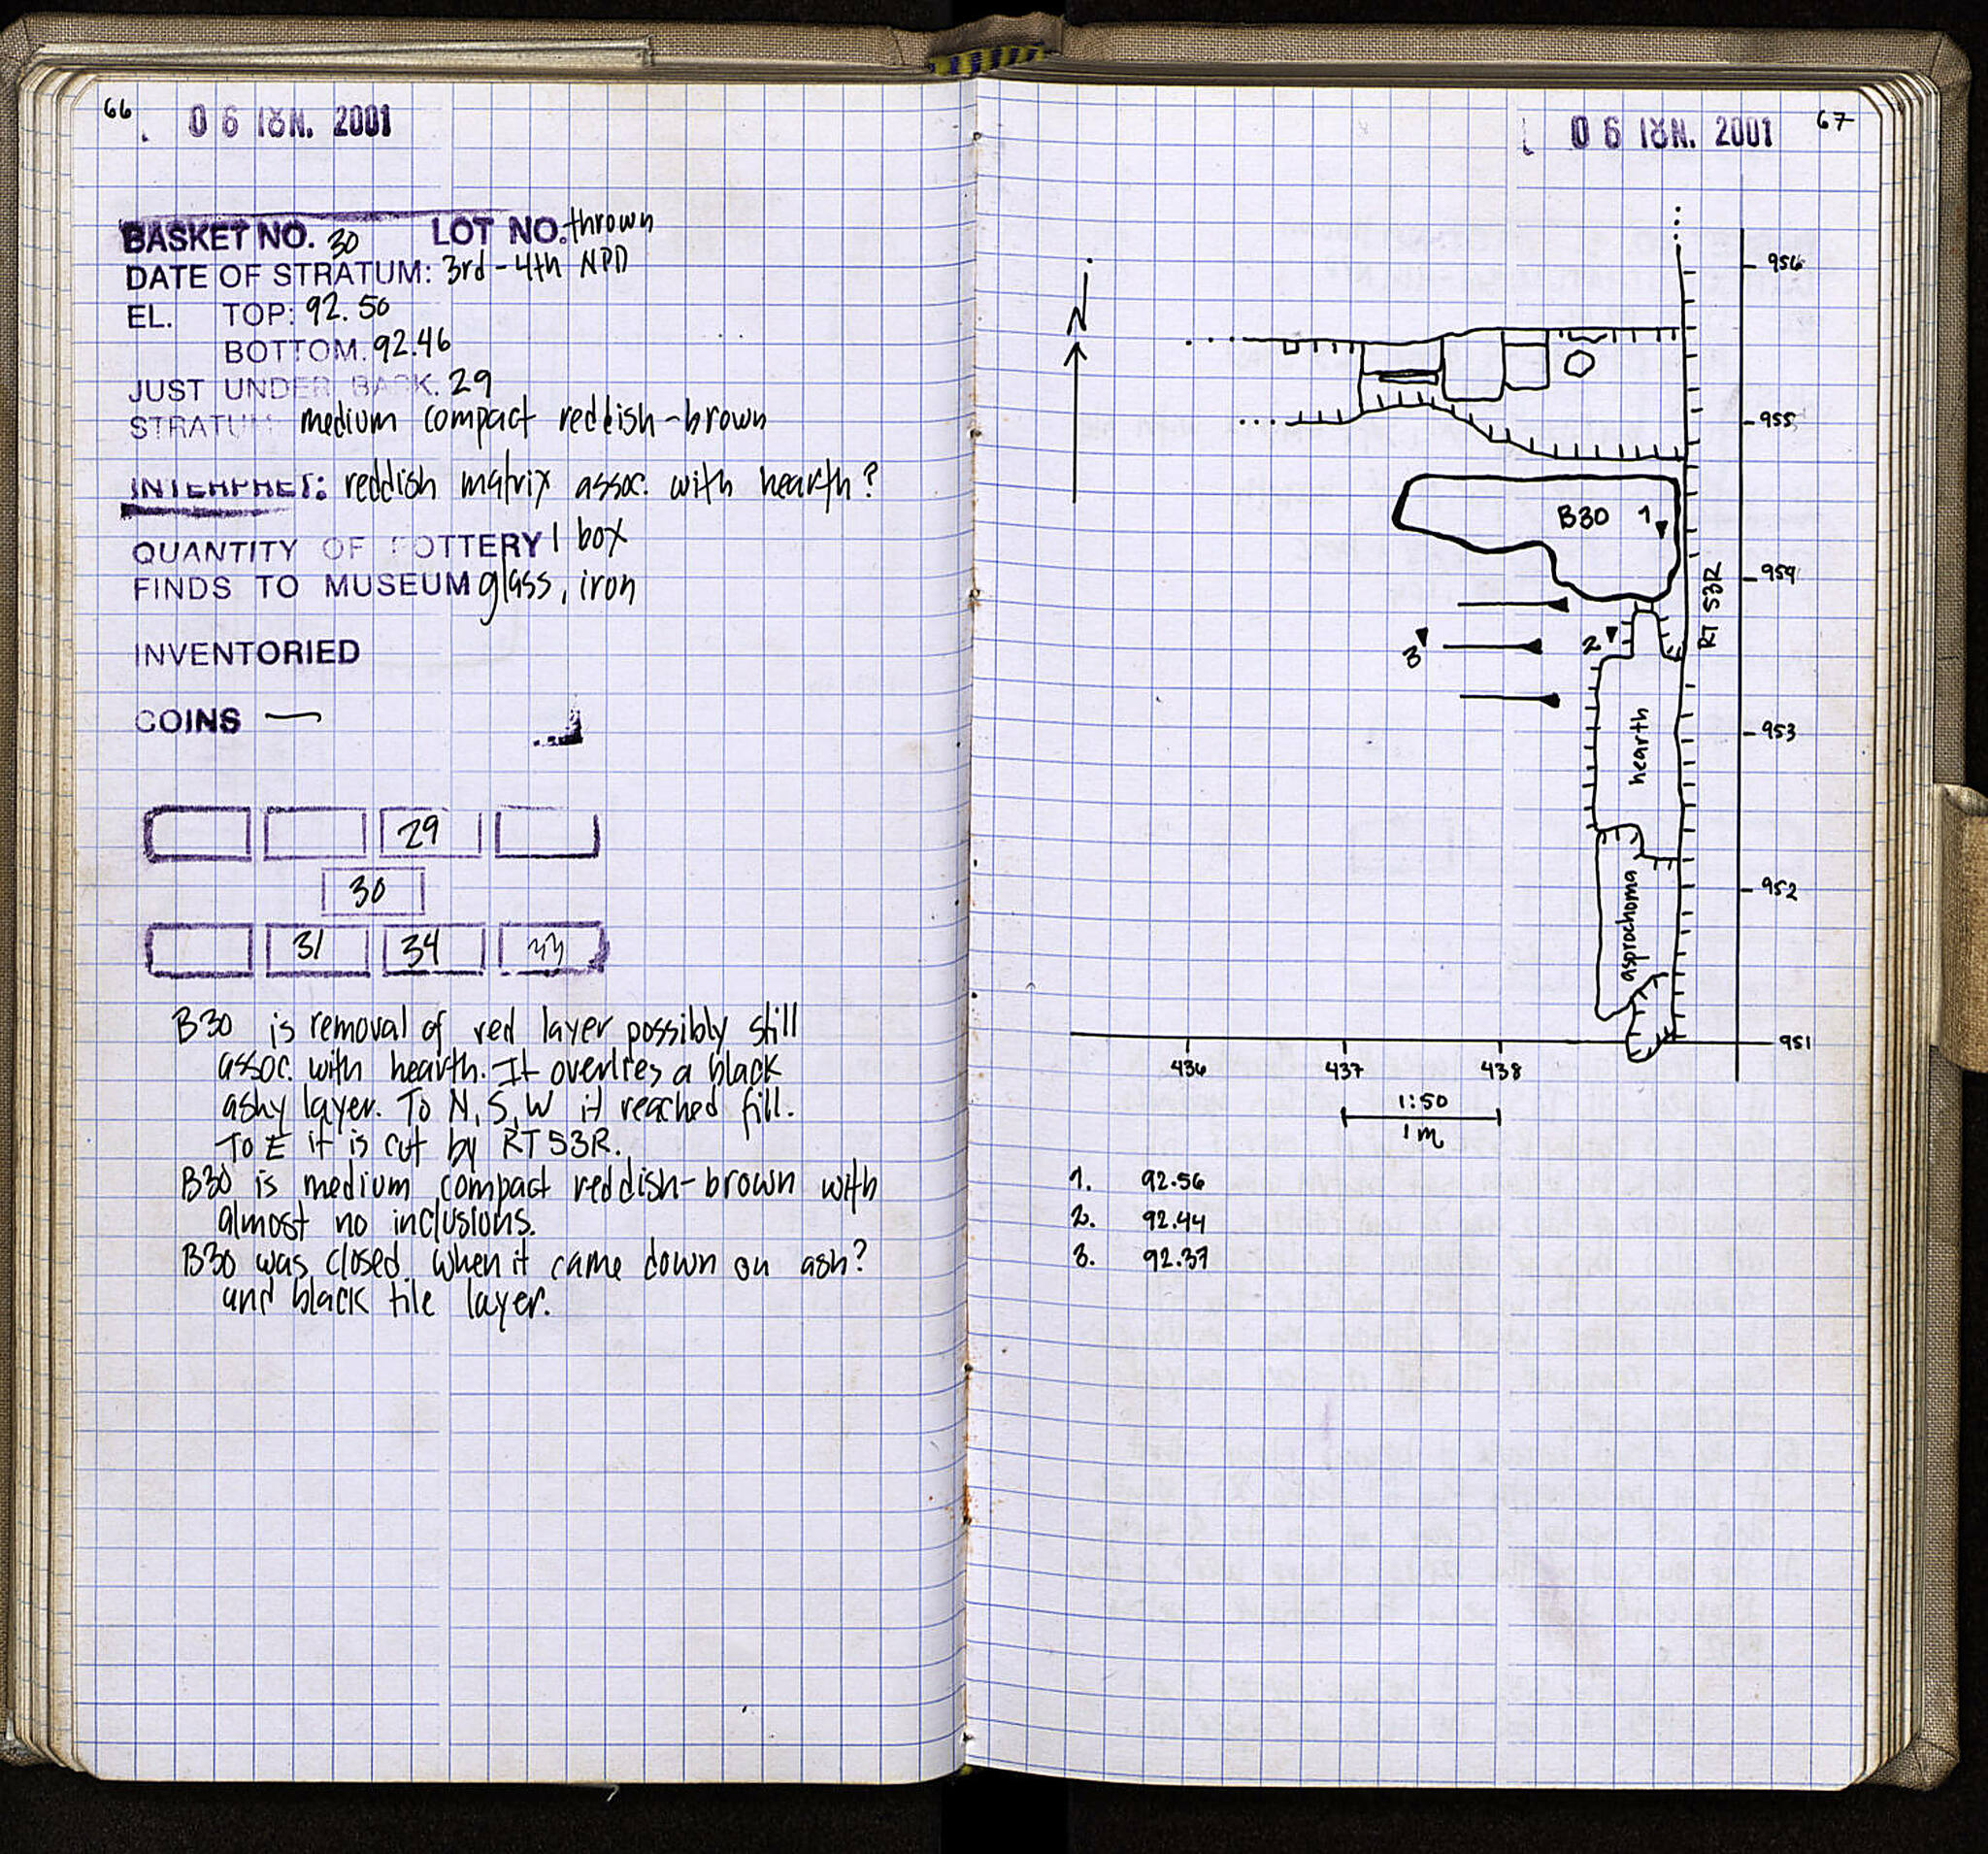 66
06 ΙΟΥΝ. 2001
BASKET NO. 30 LOT NO. thrown
DATE OF STRATUM: 3rd-4th NPD
EL. TOP: 92.50
BOTTOM. 92.46
JUST UNDER BASK. 29
STRATUM medium compact reddish-brown
INTERPRET: reddish matrix assoc. with hearth?
QUANTITY OF POTTERY 1 box
FINDS TO MUSEUM glass, iron
INVENTORIED
COINS —
29
30
31 34 33
B30 is removal of red layer possibly still
assoc. with hearth. It overlies a black
ashy layer. To N, S, W it reached fill.
To E it is cut by RT53R.
B30 is medium compact reddish-brown with
almost no inclusions.
B30 was closed when it came down on ash?
and black tile layer.
06 ΙΟΥΝ. 2001
67
N
956
955
B30 1
954
RT 53R
3
2
953
hearth
952
asprochoma
951
436 437 438
1:50
1m
1. 92.56
2. 92.44
3. 92.37